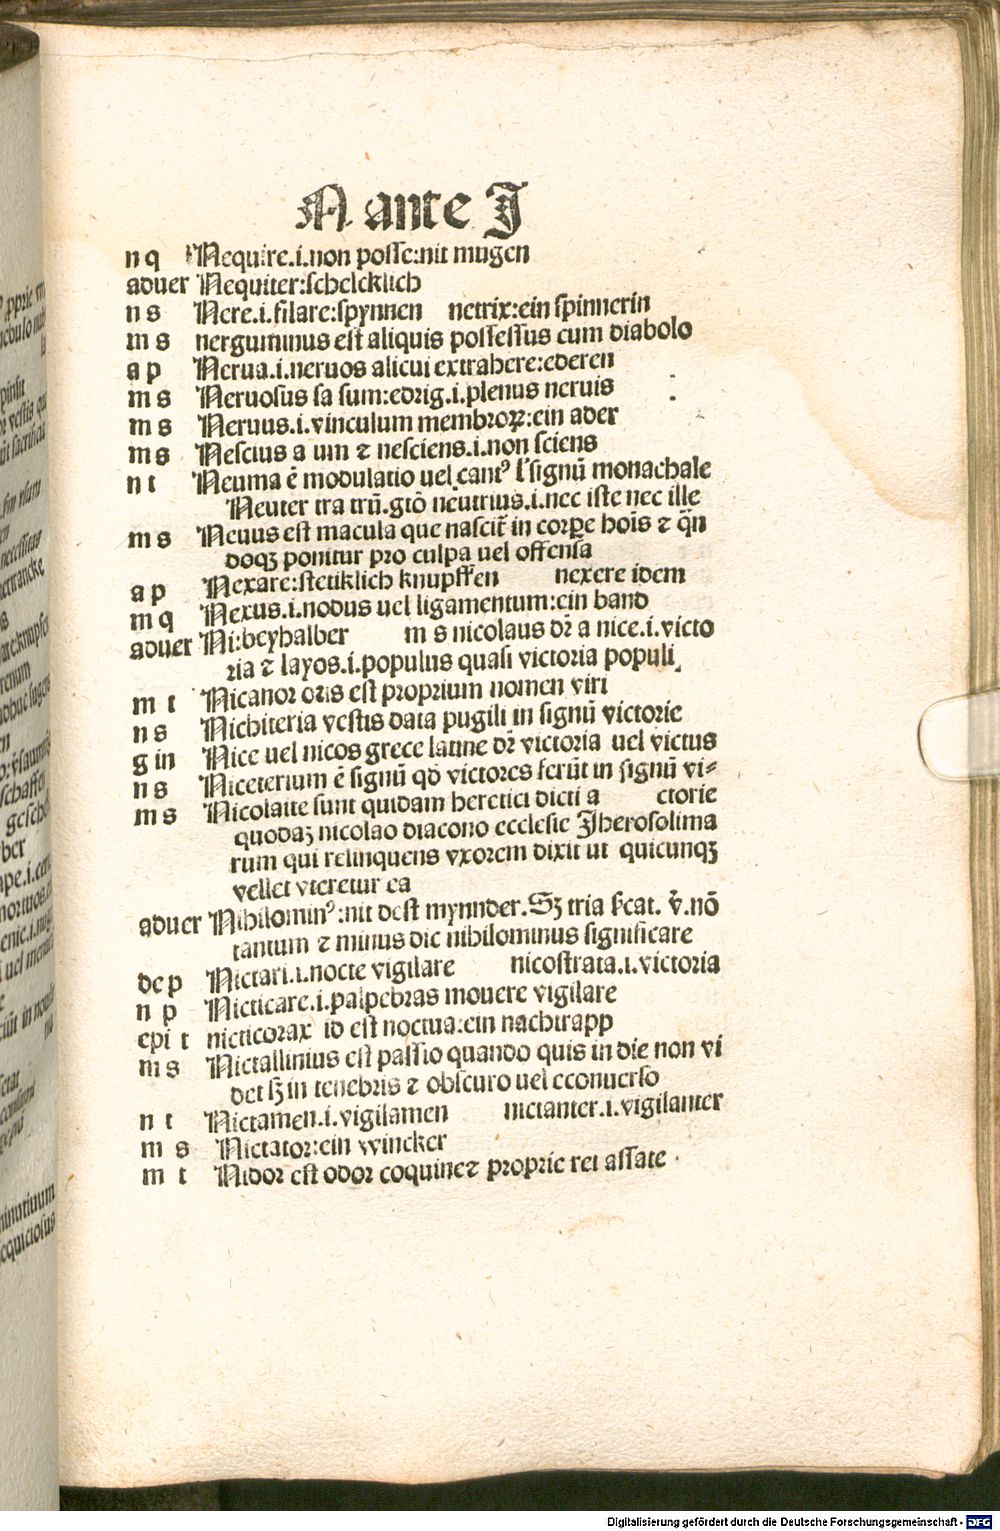 N ante I
n q Nequire.i.non posse:nit mugen
aduer Nequiter:schelcklich
n s Nere.i.filare:spynnen netrix:ein spinnerin
m s nerguminus est aliquis possessus cum diabolo
a p Nerua.i.neruos alicui extrahere:ederen
m s Neruosus sa sum:edrig.i.plenus neruis
m s Neruus.i.vinculum membroꝝ:ein ader
m s Nescius a um ⁊ nesciens.i.non sciens
n t Neuma ē modulatio uel cantꝰ l' signū monachale
Neuter tra trū.gtō neutrius.i.nec iste nec ille
m s Neuus est macula que nascit̄ in corꝑe hoīs ⁊ q̄n
doqꝫ ponitur pro culpa uel offensa
a p Nexare:stetiklich knupffen nexere idem
m q Nexus.i.nodus uel ligamentum:ein band
aduer Ni:beyhalber m s nicolaus dr̄ a nice.i.victo
ria ⁊ layos.i.populus quasi victoria populi
m t Nicanor oris est proprium nomen viri
n s Nichiteria vestis data pugili in signū victorie
g in Nice uel nicos grece latine dr̄ victoria uel victus
n s Niceterium ē signū qd victores ferūt in signū vi⸗
m s Nicolaite sunt quidam heretici dicti a ctorie
quodaꝫ nicolao diacono ecclesie Jherosolima
rum qui relinquens vxorem dixit ut quicunqꝫ
vellet vteretur ea
aduer Nihilominꝰ:nit dest mynnder.Sꝫ tria ſcat. v̄.nō
tantum ⁊ minus dic nihilominus significare
de p Nictari.i.nocte vigilare nicostrata.i.victoria
n p Nicticare.i.palpebras mouere vigilare
epi t nicticorax id est noctua:ein nachtrapp
m s Nictallinius est passio quando quis in die non vi
det sꝫ in tenebris ⁊ obscuro uel econuerso
n t Nictamen.i.vigilamen nictanter.i.vigilanter
m s Nictator:ein wincker
m t Nidor est odor coquine⁊ proprie rei assate.
Digitalisierung gefördert durch die Deutsche Forschungsgemeinschaft - DFG